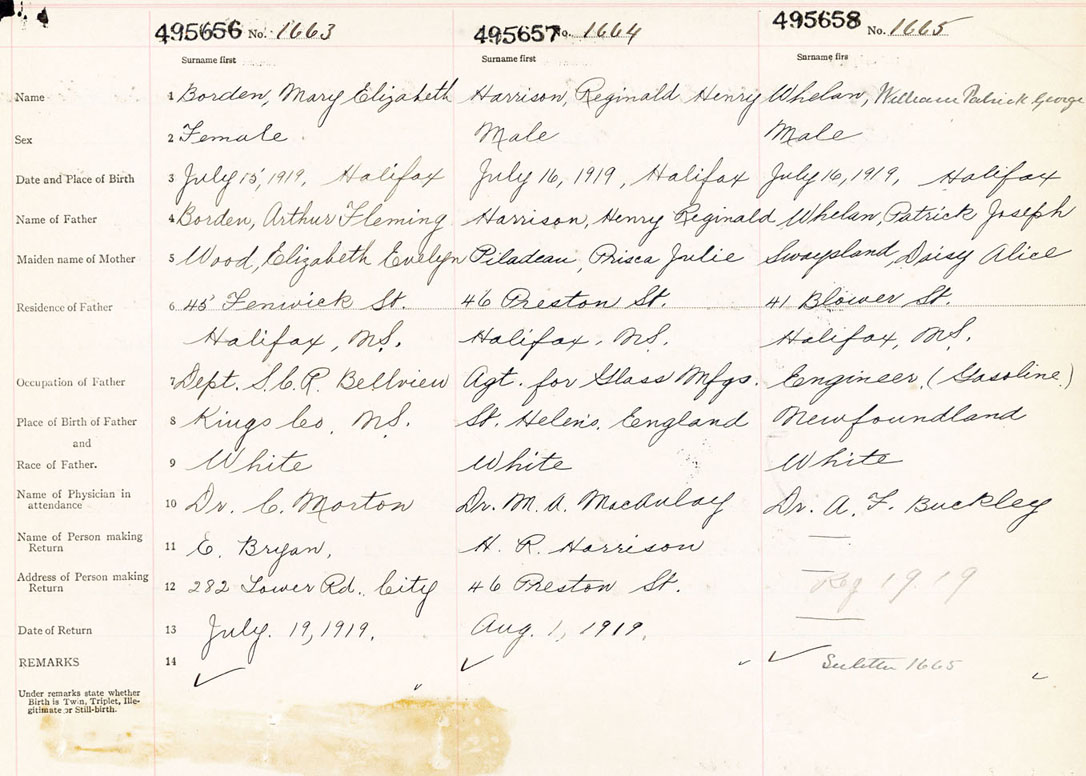 495656 No. 1663 495657 No. 1664 495658 No. 1665
Surname first Surname first Surname firs
Name 1 Borden, Mary Elizabeth Harrison, Reginald Henry Whelan, William Patrick George
Sex 2 Female Male Male
Date and Place of Birth 3 July 15, 1919, Halifax July 16, 1919, Halifax July 16, 1919, Halifax
Name of Father 4 Borden, Arthur Fleming Harrison, Henry Reginald Whelan, Patrick Joseph
Maiden name of Mother 5 Wood, Elizabeth Evelyn Piladeau, Prisca Julie Swaysland, Daisy Alice
Residence of Father 6 45 Fenwick St. 46 Preston St. 41 Blower St.
Halifax, N.S. Halifax, N.S. Halifax, N.S.
Occupation of Father 7 Dept. S.C.R. Bellview Agt. for Glass Mfgs. Engineer. (Gasoline)
Place of Birth of Father 8 Kings Co, N.S. St. Helens, England Newfoundland
and
Race of Father. 9 White White White
Name of Physician in
attendance 10 Dr. C. Morton Dr. M. A. MacAulay Dr. A. F. Buckley
Name of Person making
Return 11 E. Bryan, H. R. Harrison —
Address of Person making
Return 12 282 Tower Rd. City 46 Preston St. — Reg 1919
Date of Return 13 July. 19, 1919. Aug. 1, 1919. —
REMARKS 14 ✓ ✓ ✓ 1665
Under remarks state whether
Birth is Twin, Triplet, Ille-
gitimate or Still-birth.